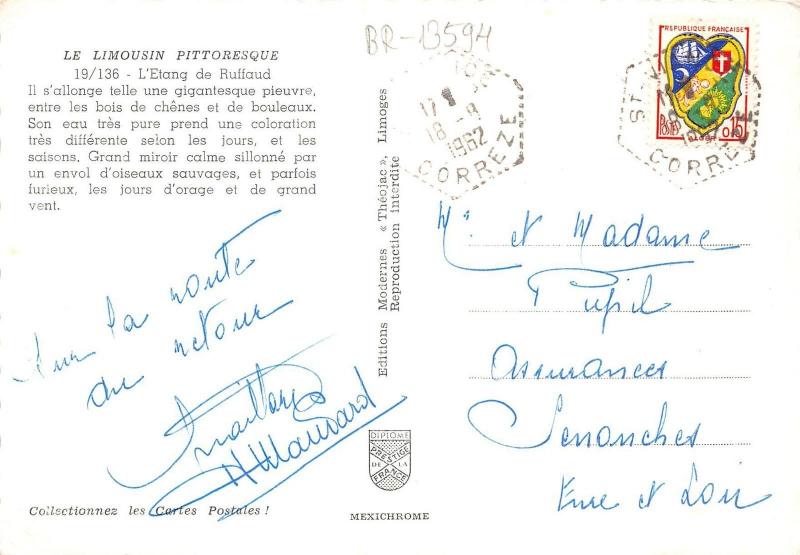 BR-13594
LE LIMOUSIN PITTORESQUE
19/136 - L'Etang de Ruffaud
Il s'allonge telle une gigantesque pieuvre,
entre les bois de chênes et de bouleaux.
Son eau très pure prend une coloration
très différente selon les jours, et les
saisons. Grand miroir calme sillonné par
un envol d'oiseaux sauvages, et parfois
furieux, les jours d'orage et de grand
vent.
Sur la route
du retour
Collectionnez les Cartes Postales !
Editions Modernes « Théojac », Limoges
Reproduction interdite
DIPLOME
PRESTIGE
DE LA
FRANCE
MEXICHROME
17
18-8
1962
CORREZE
REPUBLIQUE FRANÇAISE
POSTES
0,15
ALGER
ST
CORREZE
Mr et Madame
Pupil
Assurances
Senonches
Eure et Loir